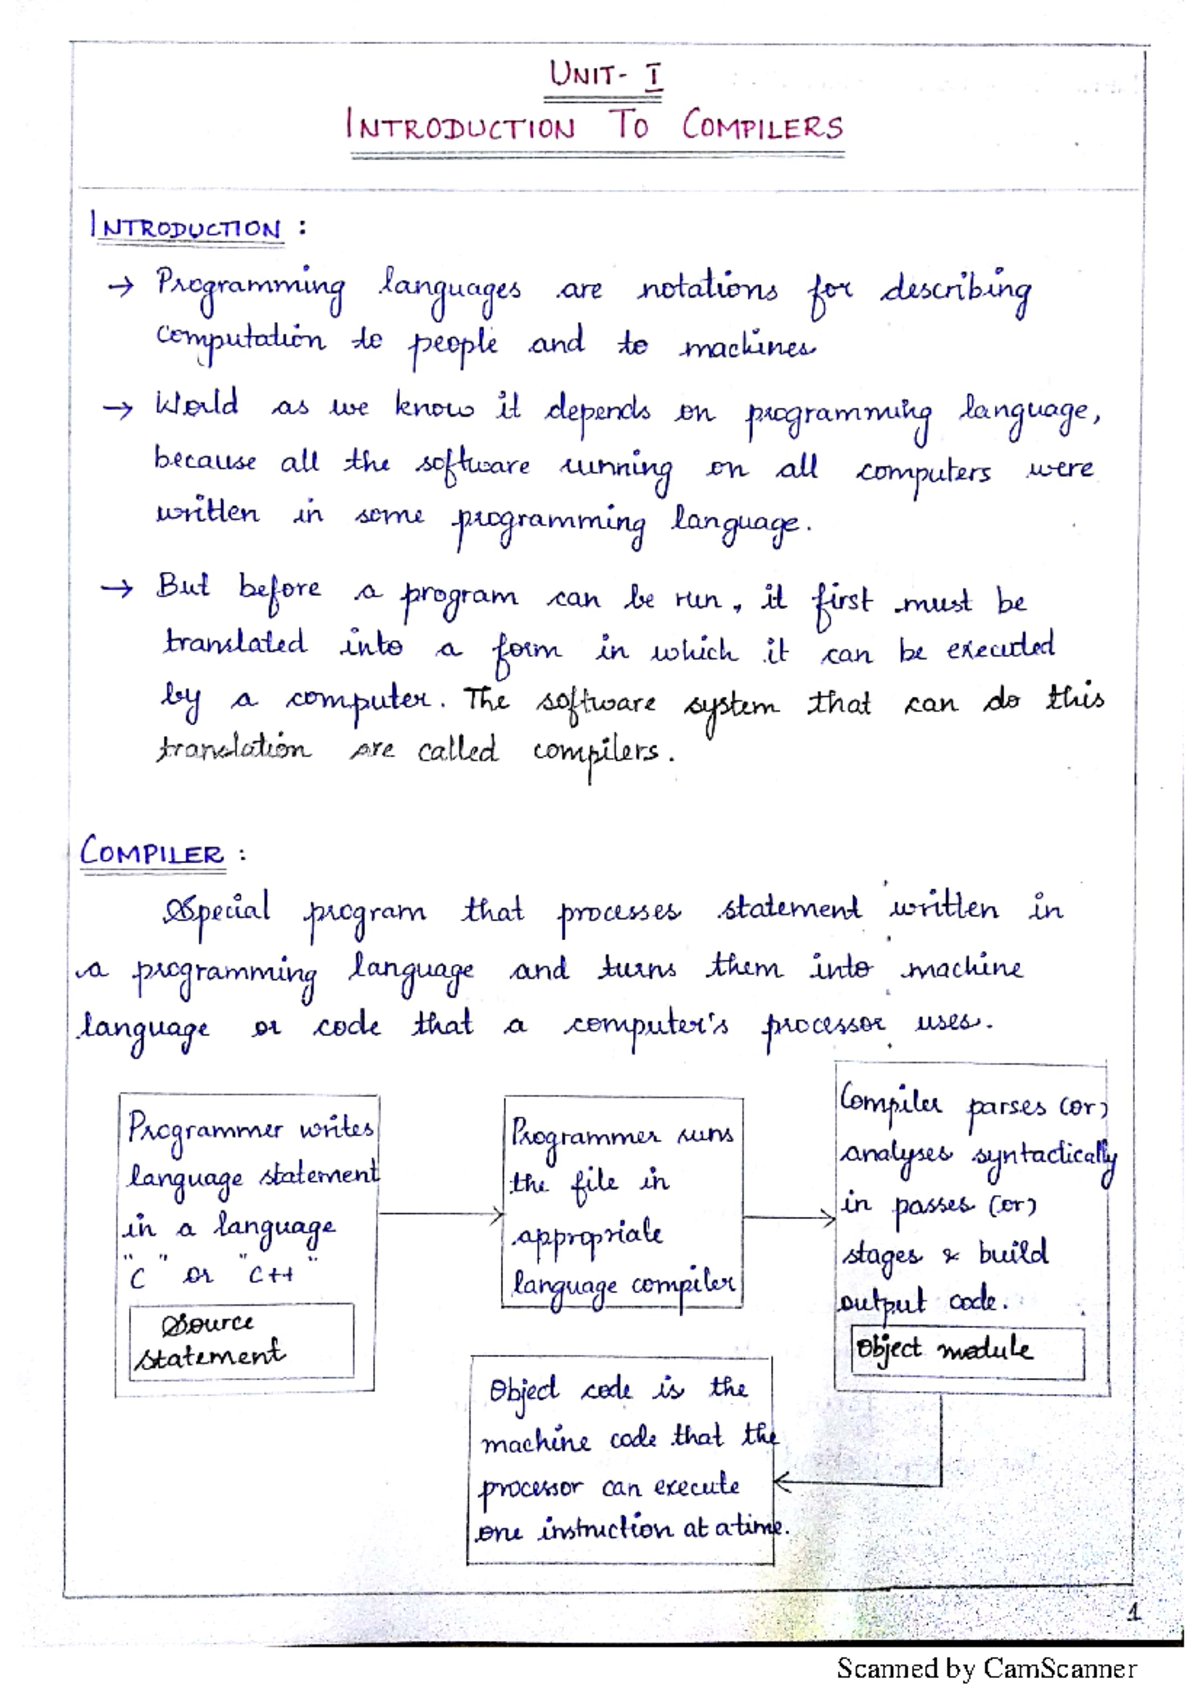 UNIT- I
INTRODUCTION TO COMPILERS
INTRODUCTION :
→ Programming languages are notations for describing
computation to people and to machines
→ World as we know it depends on programming language,
because all the software running on all computers were
written in some programming language.
→ But before a program can be run, it first must be
translated into a form in which it can be executed
by a computer. The software system that can do this
translation are called compilers.
COMPILER :
Special program that processes statement written in
a programming language and turns them into machine
language or code that a computer's processor uses.
Programmer writes
language statement
in a language
"C" or "C++"
Source
statement
Programmer runs
the file in
appropriate
language compiler
Compiler parses (or)
analyses syntactically
in passes (or)
stages & build
output code.
Object module
Object code is the
machine code that the
processor can execute
one instruction at a time.
1
Scanned by CamScanner